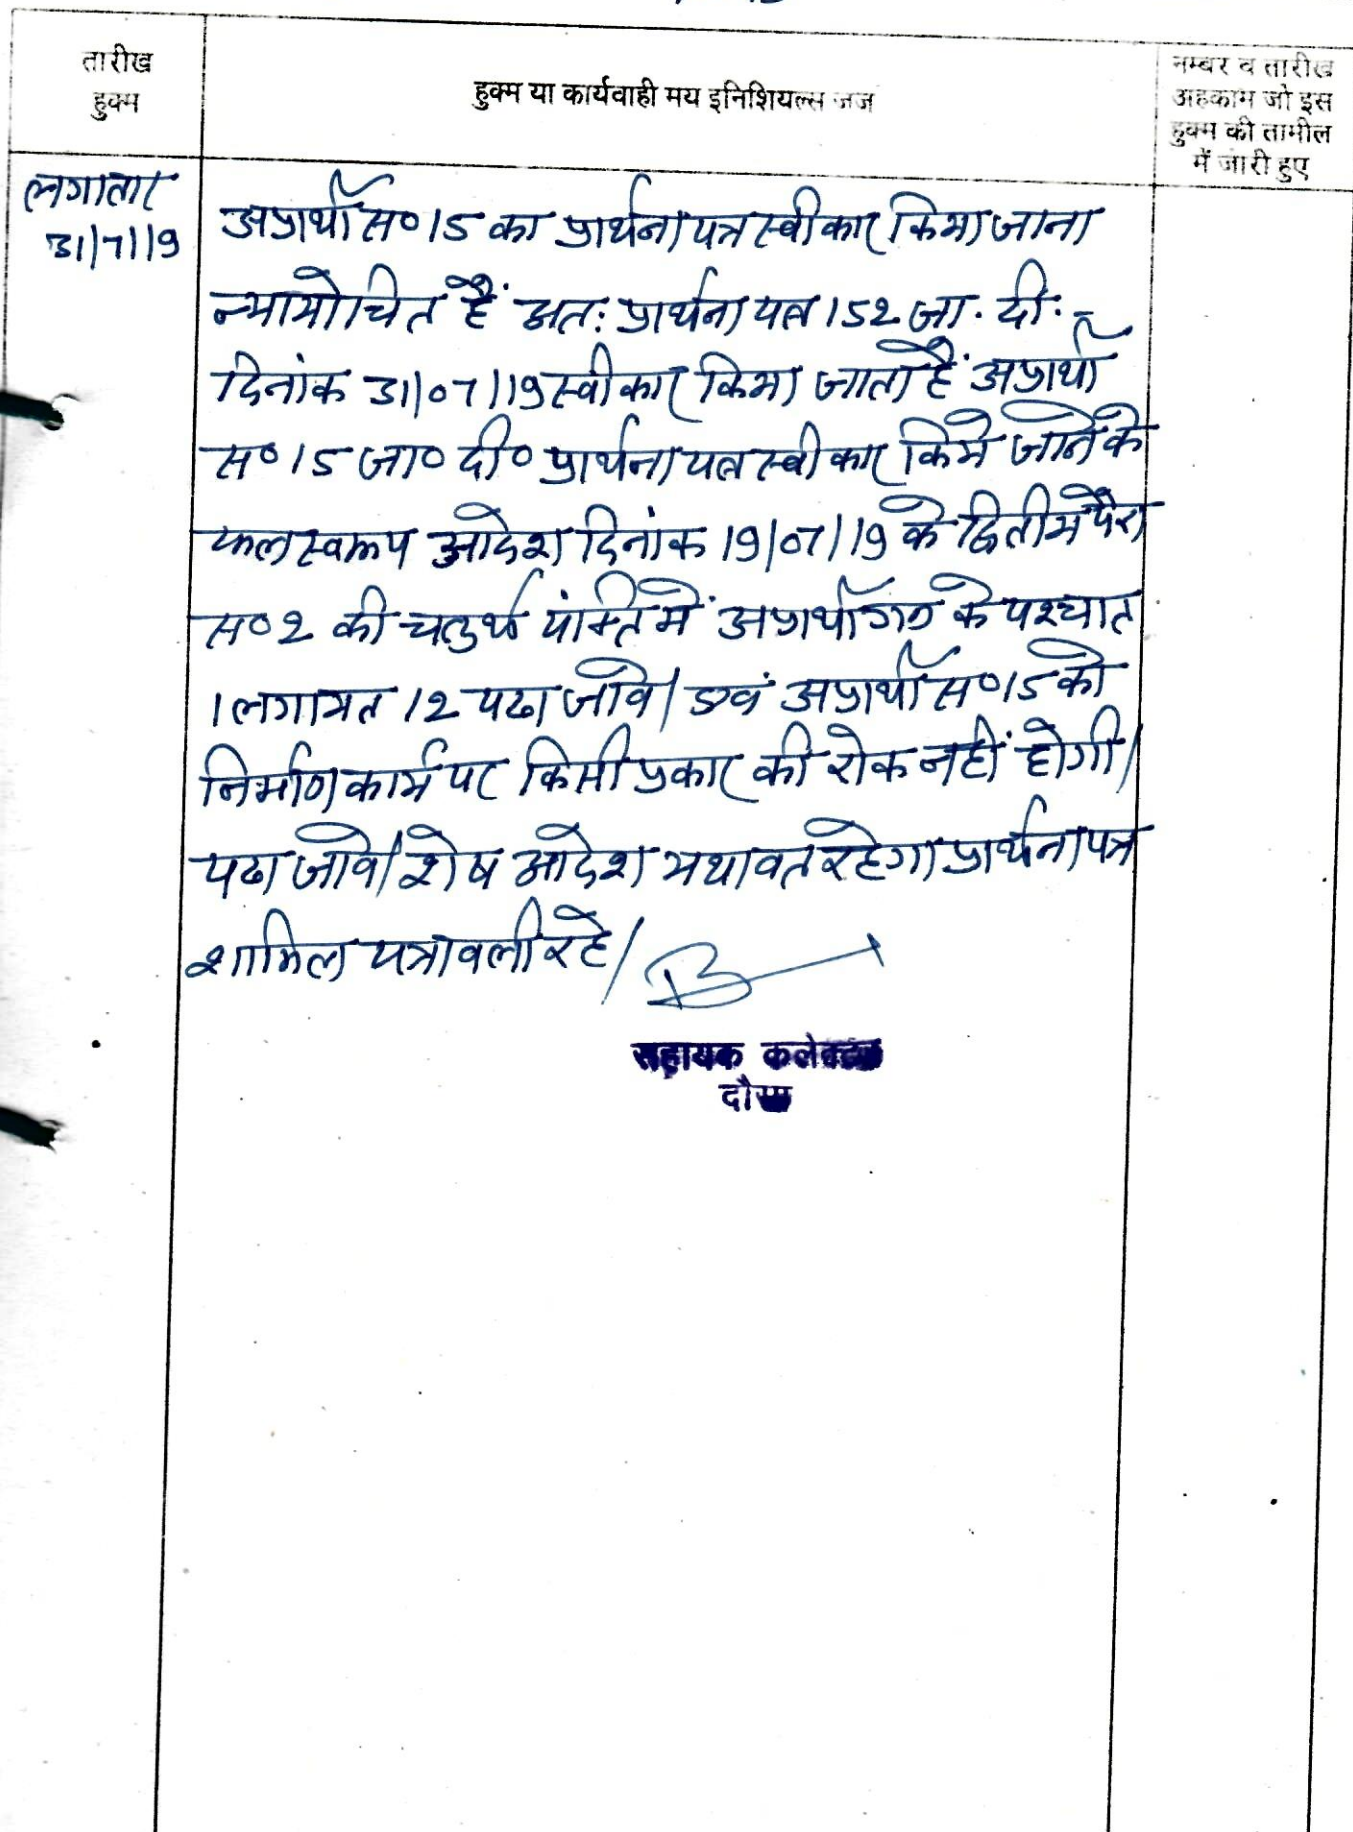 तारीख
हुक्म
हुक्म या कार्यवाही मय इनिशियल्स जज
नम्बर व तारीख
अहकाम जो इस
हुक्म की तामील
में जारी हुए
लगातार
31/7/19
अप्रार्थी स० 15 का प्रार्थना पत्र स्वीकार किया जाना
न्यायोचित हैं अत: प्रार्थना पत्र 152 जा. दी.
दिनांक 31/07/19 स्वीकार किया जाता हैं अप्रार्थी
स० 15 जा० दी० प्रार्थना पत्र स्वीकार किये जाने के
फलस्वरूप आदेश दिनांक 19/07/19 के द्वितीय पैरा
स० 2 की चतुर्थ पंक्ति में अप्रार्थीगण के पश्चात
1 लगायत 12 पढा जावे/ एवं अप्रार्थी स० 15 को
निर्माण कार्य पर किसी प्रकार की रोक नहीं होगी/
पढा जावे/ शेष आदेश यथावत रहेगा प्रार्थना पत्र
शामिल पत्रावली रहे/
सहायक कलेक्टर
दौसा